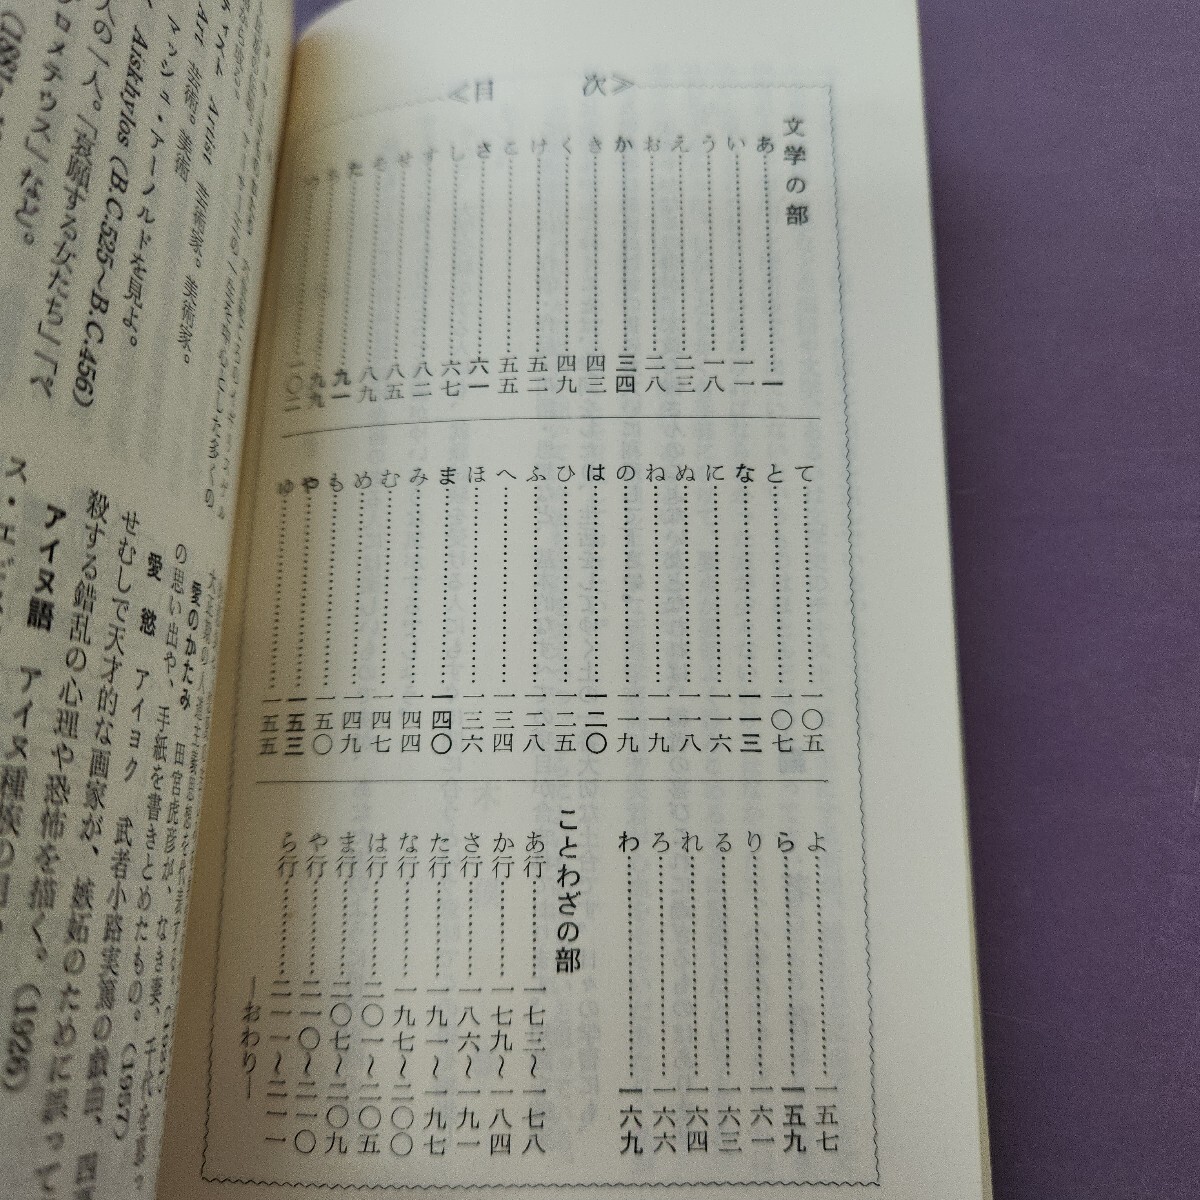 ≪目 次≫
文学の部
あ……………一
い……………一一
う……………一八
え……………二三
お……………二八
か……………三四
き……………四三
く……………四九
け……………五二
こ……………五五
さ……………六一
し……………六七
す……………八二
せ……………八五
そ……………八九
た……………九一
ち……………九九
つ……………一〇二
て……………一〇五
と……………一〇七
な……………一一三
に……………一一六
ぬ……………一一八
ね……………一一九
の……………一一九
は……………一二〇
ひ……………一二五
ふ……………一二八
へ……………一三四
ほ……………一三六
ま……………一四〇
み……………一四四
む……………一四七
め……………一四九
も……………一五〇
や……………一五三
ゆ……………一五五
よ……………一五七
ら……………一五九
り……………一六一
る……………一六三
れ……………一六四
ろ……………一六六
わ……………一六九
ことわざの部
あ行…………一七三〜一七八
か行…………一七九〜一八四
さ行…………一八六〜一九一
た行…………一九一〜一九七
な行…………一九七〜二〇〇
は行…………二〇一〜二〇五
ま行…………二〇七〜二〇九
や行…………二一〇〜二一〇
ら行…………二一一〜二一一
―おわり―
Artist 芸術家。美術家。
Art 芸術。美術
アーノルドを見よ。
Aiskhylos (B.C.525〜B.C.456)
人の一人。「哀願する女たち」「ペ
ロメテウス」など。
愛のかたみ 田宮虎彦が、なき妻、千代を
の思い出や、手紙を書きとめたもの。(1957)
愛 慾 アイヨク 武者小路実篤の戯曲、
せむしで天才的な画家が、嫉妬のために誤って
殺する錯乱の心理や恐怖を描く。(1926)
アイヌ語 アイヌ種族の